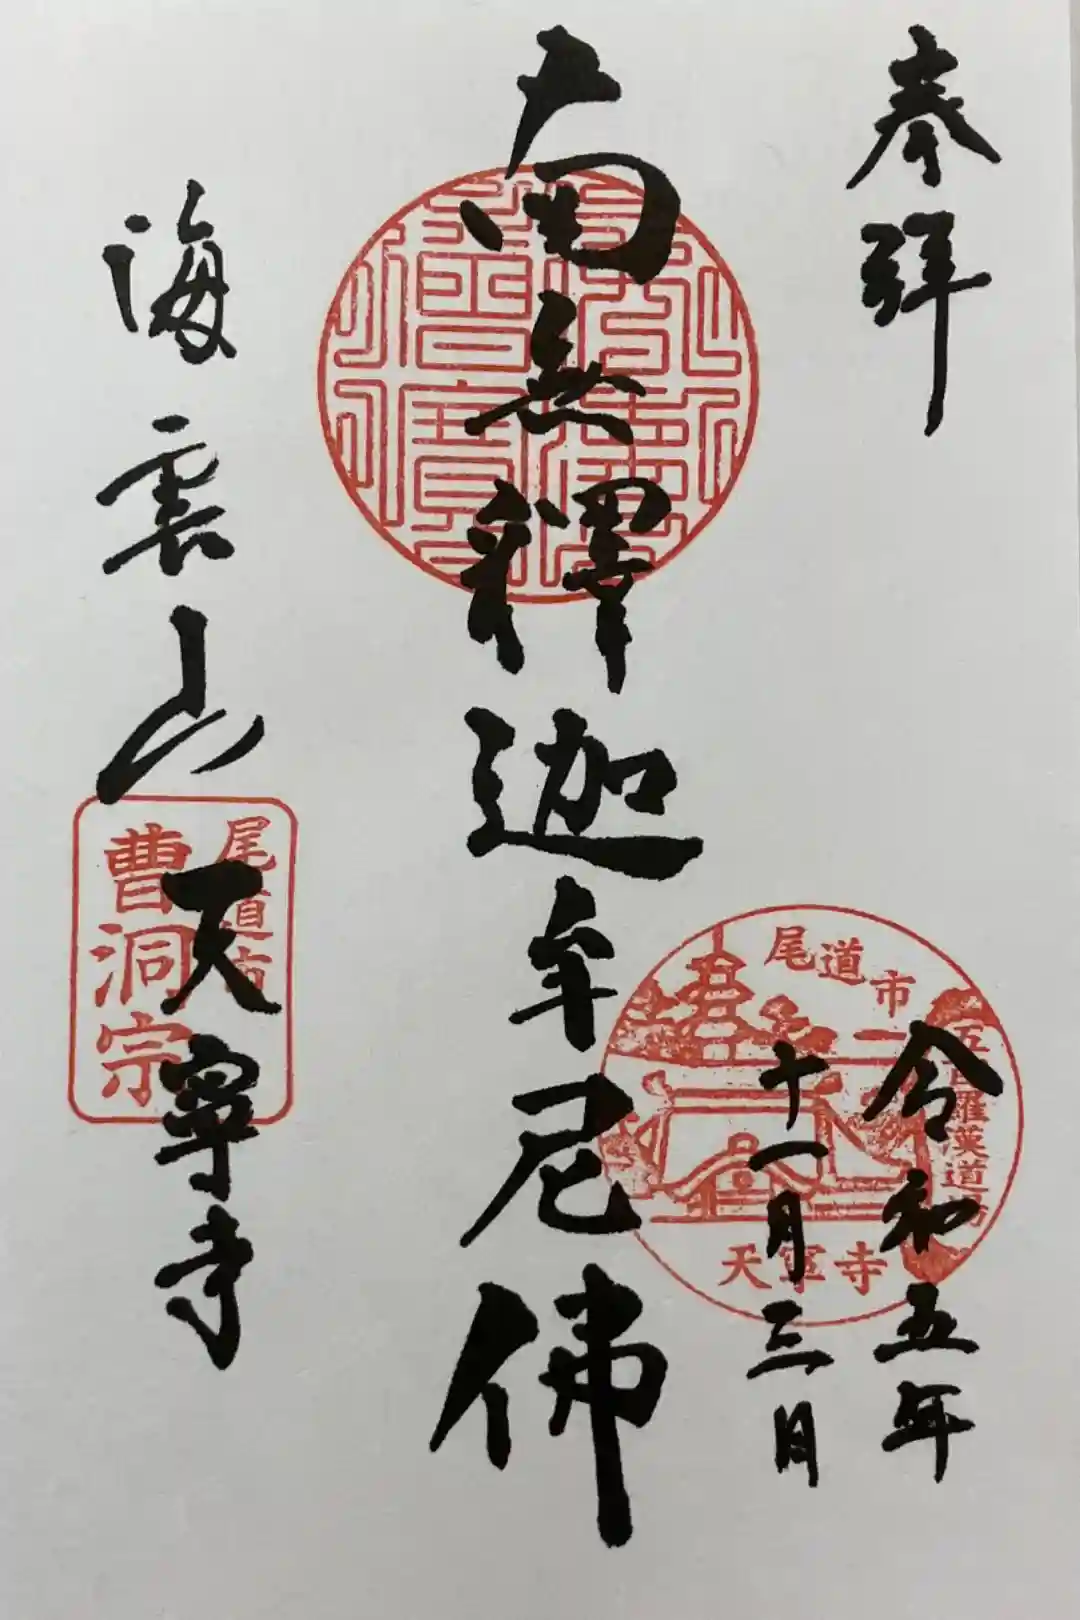 奉拜
令和五年
十一月三日
尾道市
五百羅漢道場
天寧寺
南無釋迦牟尼佛
海雲山
天寧寺
尾道市
曹洞宗